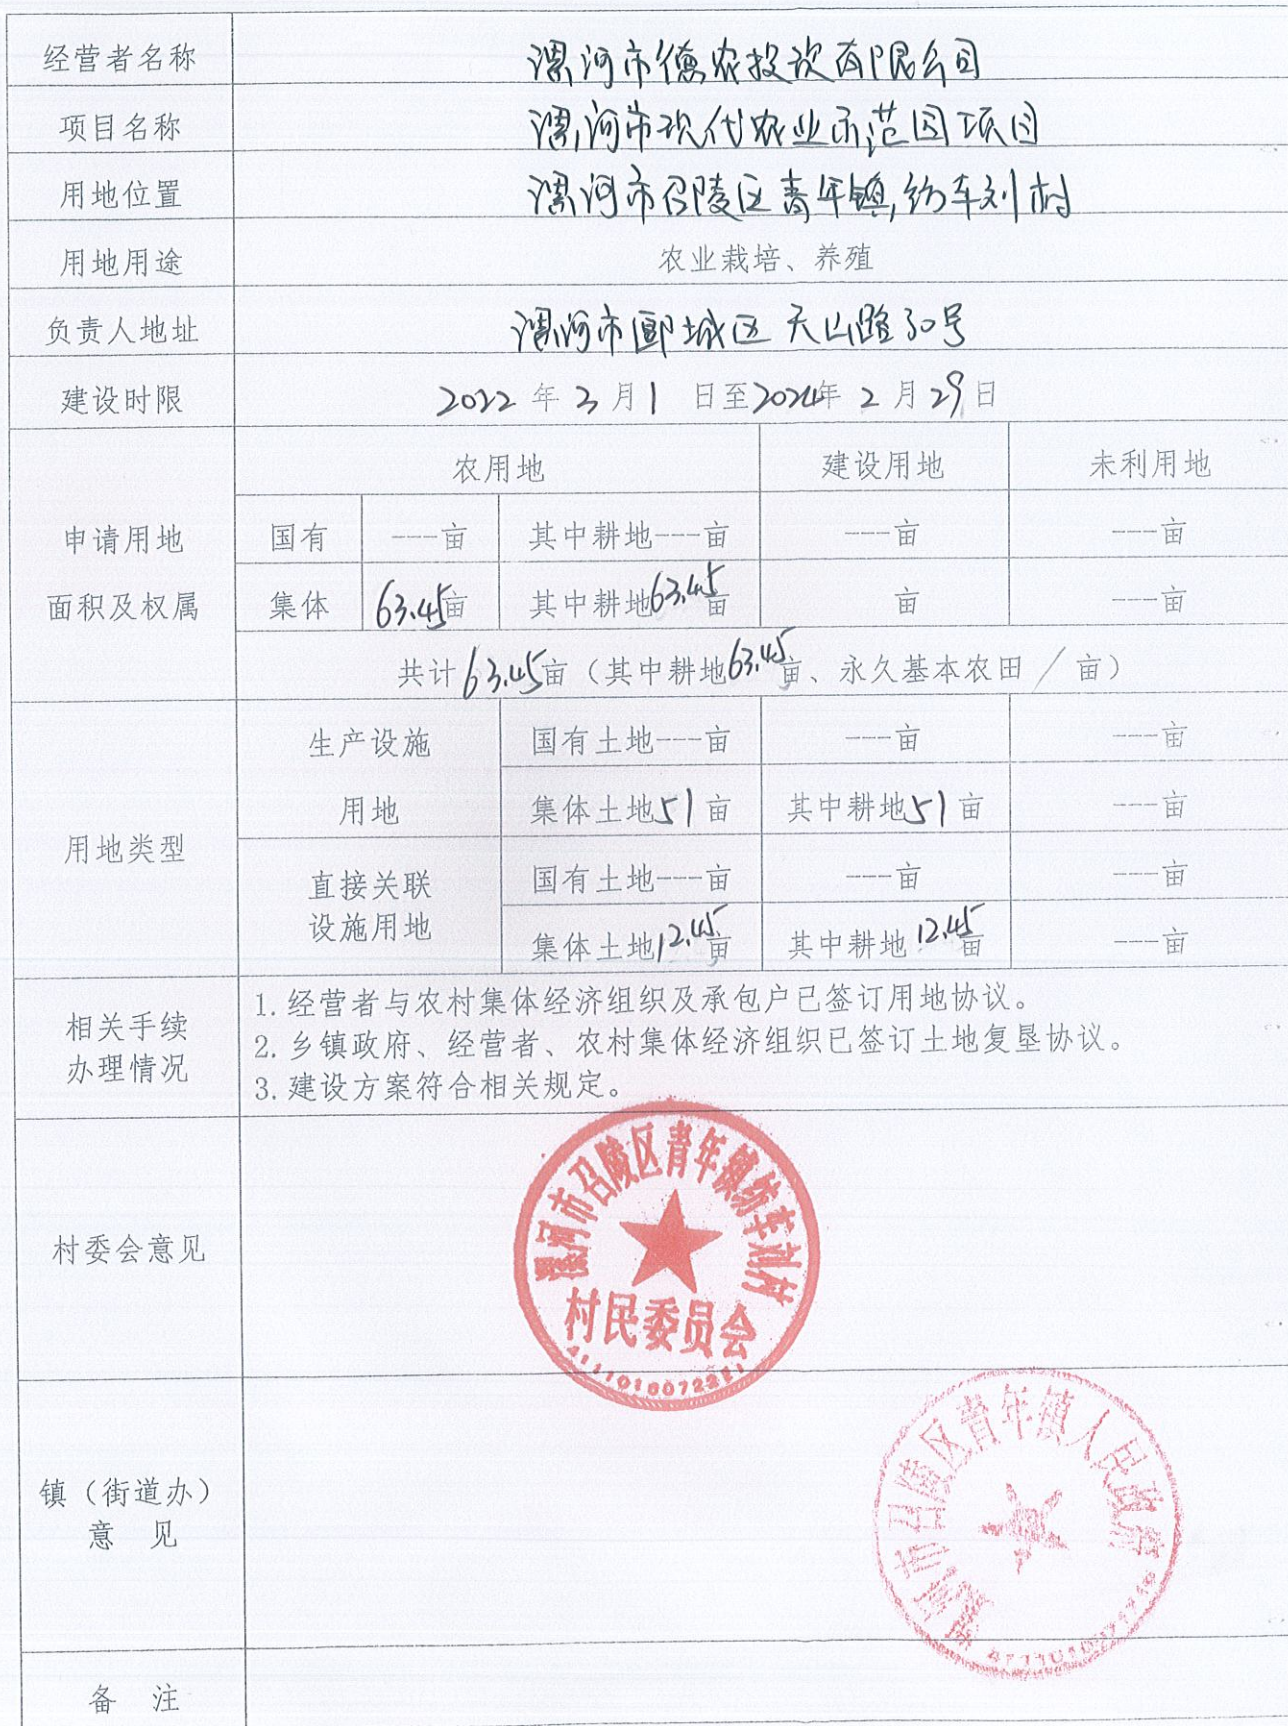 经营者名称 漯河市德农投资有限公司
项目名称 漯河市现代农业示范园项目
用地位置 漯河市召陵区青年镇纺车刘村
用地用途 农业栽培、养殖
负责人地址 漯河市郾城区天山路30号
建设时限 2022年3月1日至2024年2月29日
农用地 建设用地 未利用地
申请用地 国有 ---亩 其中耕地---亩 ---亩 ---亩
面积及权属 集体 63.45亩 其中耕地63.45亩 亩 ---亩
共计63.45亩（其中耕地63.45亩、永久基本农田/亩）
生产设施 国有土地---亩 ---亩 ---亩
用地 集体土地51亩 其中耕地51亩 ---亩
用地类型
直接关联 国有土地---亩 ---亩 ---亩
设施用地 集体土地12.45亩 其中耕地12.45亩 ---亩
相关手续
办理情况
1.经营者与农村集体经济组织及承包户已签订用地协议。
2.乡镇政府、经营者、农村集体经济组织已签订土地复垦协议。
3.建设方案符合相关规定。
村委会意见
漯河市召陵区青年镇纺车刘村
村民委员会
镇（街道办）
意 见
漯河市召陵区青年镇人民政府
备 注